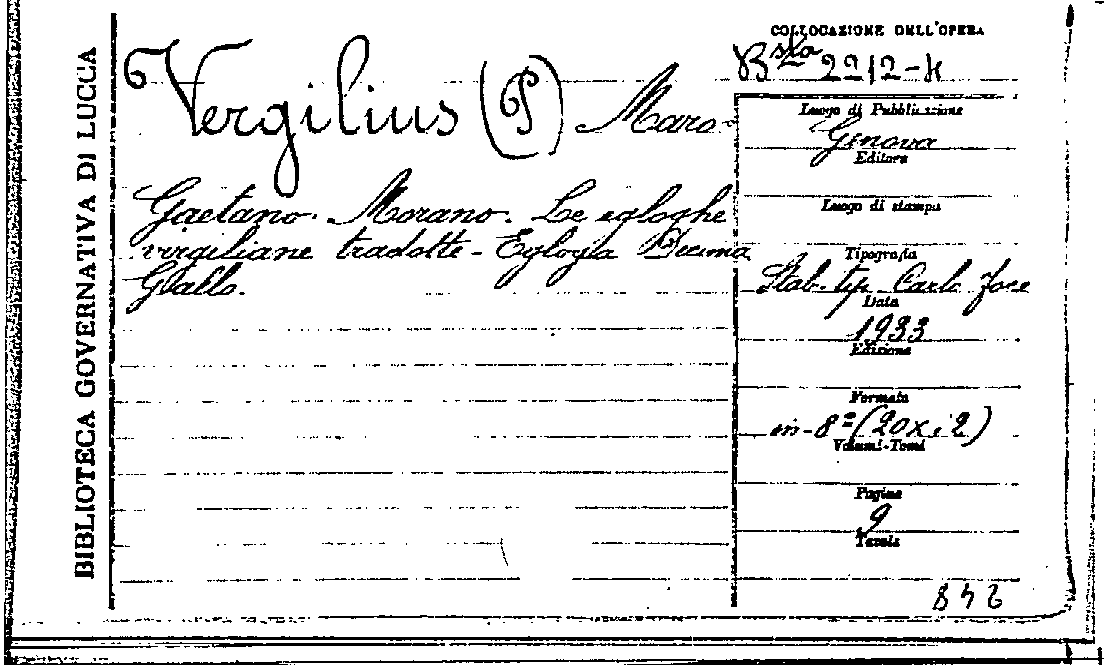 BIBLIOTECA GOVERNATIVA DI LUCCA
Vergilius (P) Maro.
Gaetano. Morano. Le egloghe
virgiliane tradotte - Egloga Decima
Gallo.
COLLOCAZIONE DELL'OPERA
Bsta 2212-4
Luogo di Pubblicazione
Genova
Editore
Luogo di stampa
Tipografia
Stab. tip. Carlo
Data
1933
Edizione
Formato
in-8º (20x12)
Volumi-Tomi
Pagine
9
Tavole
842